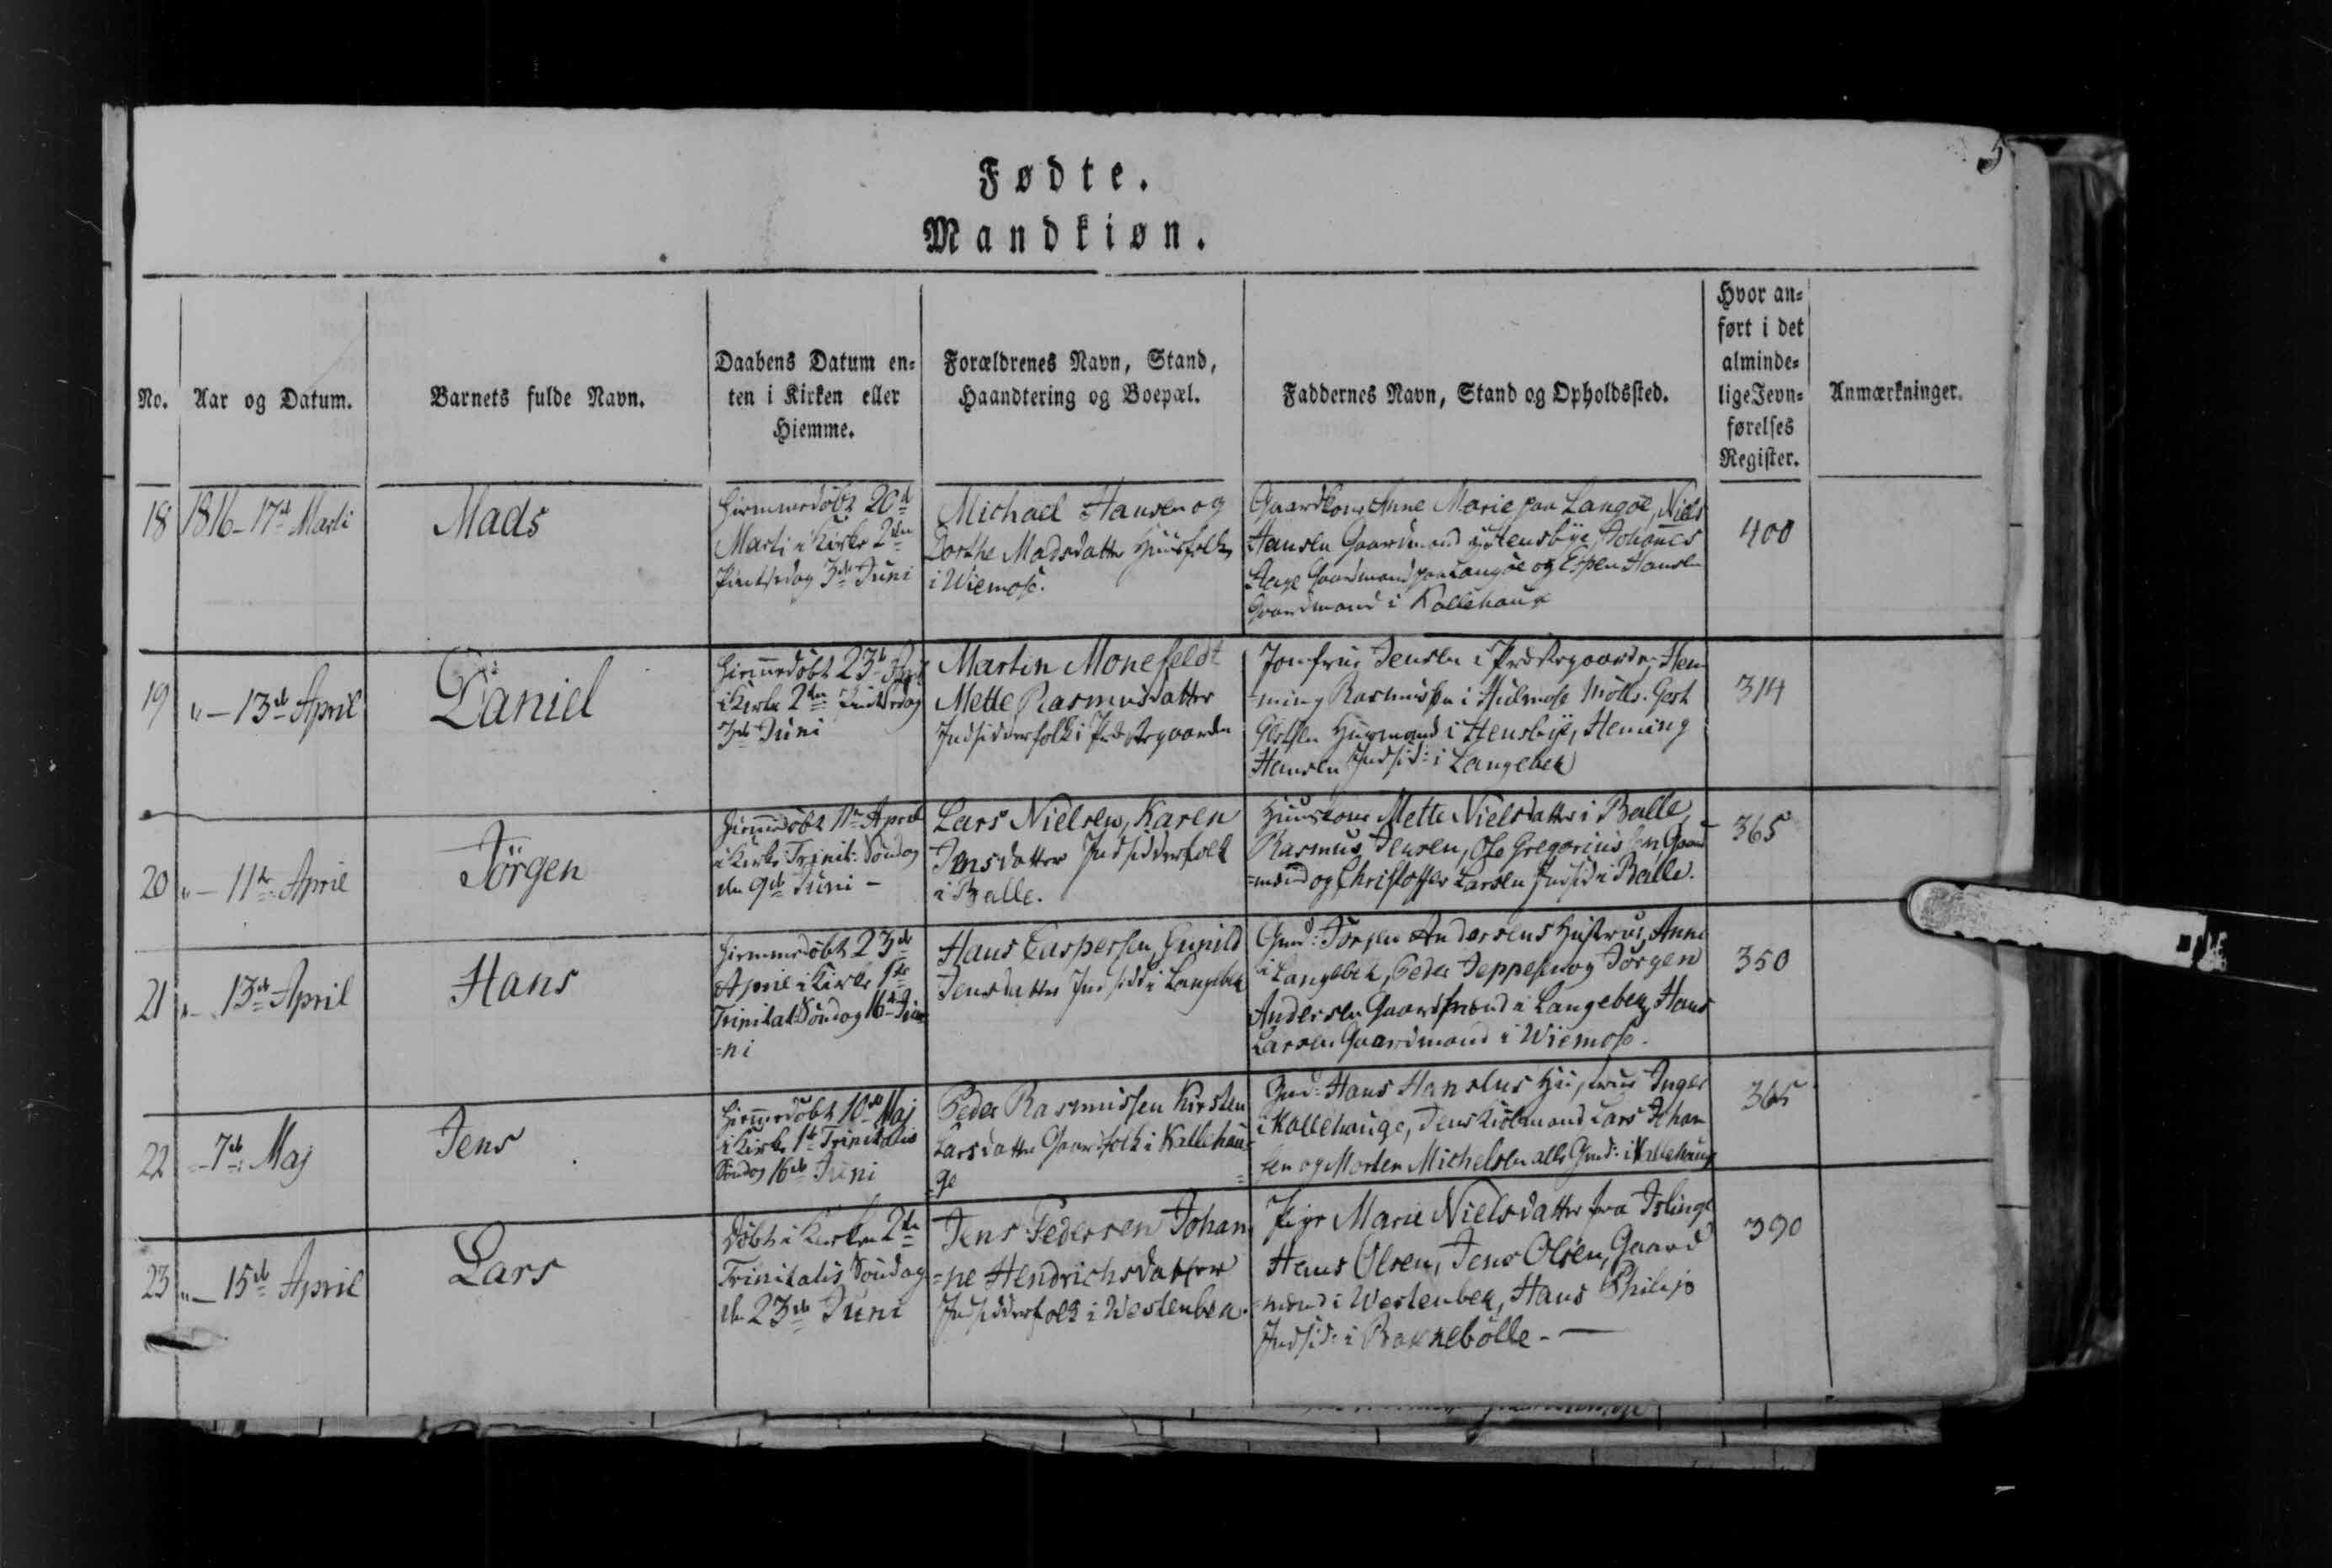 5
Fødte.
Mandkiøn.
No.
Aar og Datum.
Barnets fulde Navn.
Daabens Datum en-
ten i Kirken eller
Hiemme.
Forældrenes Navn, Stand,
Haandtering og Boepæl.
Faddernes Navn, Stand og Opholdssted.
Hvor an-
ført i det
alminde-
lige Jevn-
førelses
Register.
Anmærkninger.
18
1816 - 17de Marti
Mads
hiemmedöbt 20d
Marti i Kirke 2den
Pintsedag 3de Juni
Michael Hansen og
Dorthe Madsdatter Huusfolk
i Wiemose.
Gaardkone Anne Marie paa Langöe, Niels
Hansen Gaardmand i Stensbÿe, Johanes
Gaardmand paa Langöe og Espen Hansen
Gaardmand i Kallehauge
400
19
" - 13de April
Daniel
hiemmedöbt 23de April
i Kirke 2den Pintsedag
3de Juni
Martin Monefeldt
Mette Rasmusdatter
Indsidderfolk i Præstegaarden
Jomfrue Jensen i Præstegaarden, Hen
=ning Rasmussen i Gert
Gertsen Huusmand i Stensbÿe, Hening
Hansen Indsid: i Langebek
314
20
" - 11te April
Jörgen
hiemmedöbt 11te April
i Kirke Trinit: Söndag
den 9de Juni -
Lars Nielsen, Karen
Jensdatter Indsidderfolk
i Balle.
Huuskone Mette Nielsdatter i Balle,
Rasmus Jensen, Ole Gregoriussen Gaard
=mænd og Christoffer Larsen Indsid i Balle.
365
21
" - 13de April
Hans
hiemmedöbt 23de
April i Kirke 1ste
Trinitat: Söndag 16de Ju
=ni
Hans Caspersen, Gunild
Jensdatter Indsidd i Langebek
Gmd: Jörgen Andersens Hustrue, Anne
i Langebek, Peder Jeppesen og Jörgen
Andersen Gaardmænd i Langebek, Hans
Larsen Gaardmand i Wiemose.
350
22
- 7de Maj
Jens
hiemmedöbt 10de Maj
i Kirke 1ste Trinitatis
Söndag 16de Juni
Peder Rasmussen Kirsten
Larsdatter Gaardfolk i Kallehau=
=ge
Gmd: Hans Hansens Hustrue Inger
i Kallehauge, Jens Lars Johan
sen og Morten Michelsen alle Gmd: i Kallehauge
365
23
" - 15de April
Lars
Döbt i Kirken 2den
Trinitatis Söndag
den 23de Juni
Jens Pedersen Johan
=ne Hendrichsdatter
Indsidderfolk i Westenbek.
Pige Marie Nielsdatter fra Islinge
Hans Olsen, Jens Olsen, Gaard
=mænd i Westenbek, Hans Philip
Indsid: i Bakkebölle. -
390